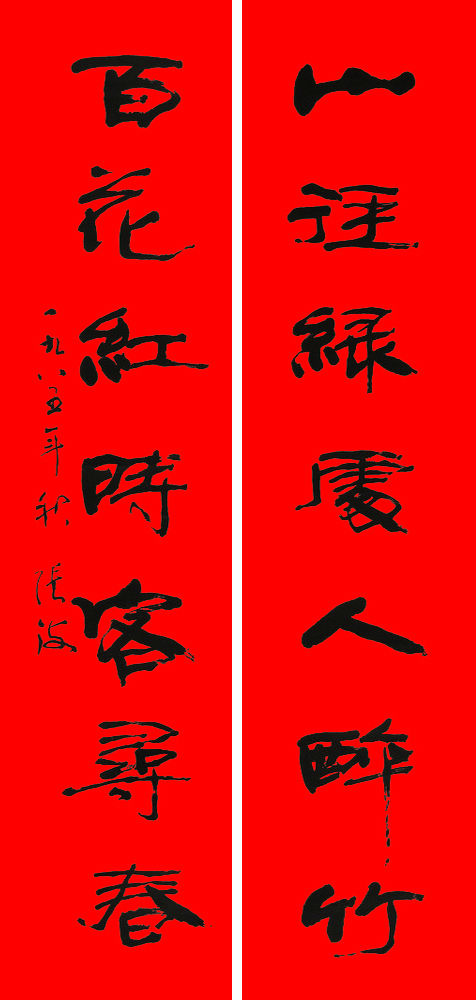 山徑綠處人醉竹
百花紅時客尋春
一九八五年秋 張海